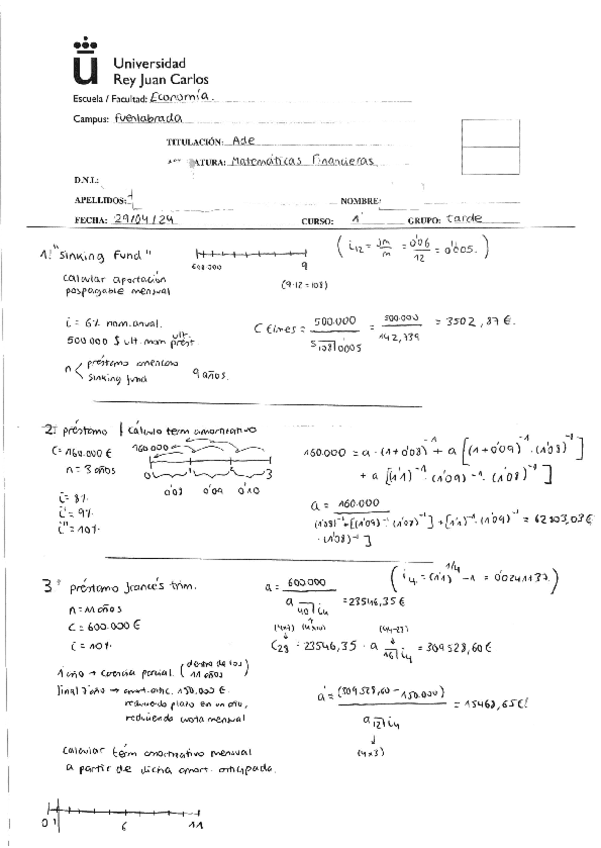 Universidad
Rey Juan Carlos
Escuela / Facultad: Economía.
Campus: fuenlabrada
TITULACIÓN: Ade
ATURA: Matemáticas Financieras
D.N.I.:
APELLIDOS:
NOMBRE:
FECHA: 29/04/24 CURSO: 1º GRUPO: tarde
1. "Sinking Fund"
600.000 9
(9·12=108)
( i12 = Jm/m = 0'06/12 = 0'005. )
calcular aportación
pospagable mensual
i = 6% nom.anual.
500.000 $ ult. nom prést
ult.
n < préstamo americano
sinking fund
9 años.
C = 500.000 / S108|0'005 = 500.000 / 142,739 = 3502,87 €.
2. préstamo | cálculo term amortizativo
C = 160.000 €
n = 3 años
160.000
0 1 3
0'08 0'09 0'10
i = 8%
i' = 9%
i'' = 10%
160.000 = a · (1+0'08)⁻¹ + a [(1+0'09)⁻¹ · (1'08)⁻¹]
+ a [(1'1)⁻¹ · (1'09)⁻¹ · (1'08)⁻¹]
a = 160.000 / (1'08)⁻¹ + [(1'09)⁻¹ · (1'08)⁻¹] + [(1'1)⁻¹ · (1'09)⁻¹ · (1'08)⁻¹] = 62103,03€
3. préstamo francés trim.
n = 11 años
C = 600.000 €
i = 10%
a = 600.000 / a40|i4 = 23546,35 €
( i4 = (1'1)^1/4 − 1 = 0'0241137. )
(4x7) (4x10) (44-28)
C28 = 23546,35 · a16|i4 = 309528,60 €
1 año → carencia parcial. ( dentro de los 11 años )
final 7 año → amort. antic. 150.000 €.
reduciendo plazo en un año,
reduciendo cuota mensual
a' = (309528,60 − 150.000) / a12|i4 = 15468,65€
(4x3)
calcular térm amortizativo mensual
a partir de dicha amort. anticipada.
0 1 6 11